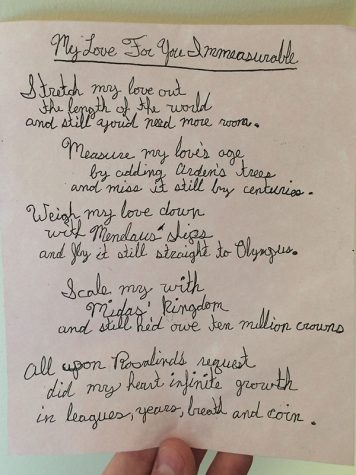 My Love For You Immeasurable
Stretch my love out
the length of the world
and still you'd need more room.
Measure my love's age
by adding Arden's trees
and miss it still by centuries.
Weigh my love down
with Menelaus' ships
and fly it still straight to Olympus.
Scale my with
Midas' Kingdom
and still he'd owe ten million crowns
All upon Rosalind's request
did my heart infinite growth
in leagues, years, breath and coin.